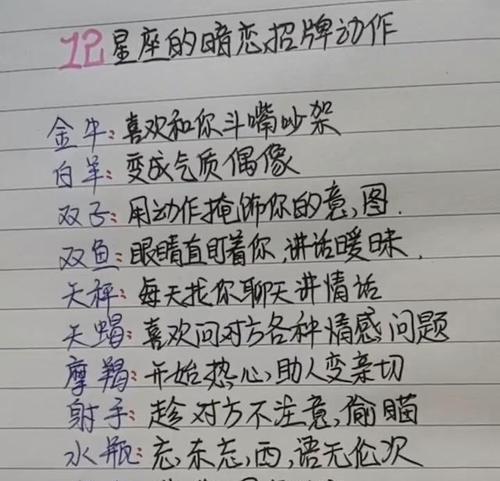 12星座的暗恋招牌动作
金牛:喜欢和你斗嘴吵架
白羊:变成气质偶像
双子:用动作掩饰你的意图.
双鱼:眼睛直盯着你,讲话暧昧.
天秤:每天找你聊天讲情话
天蝎:喜欢问对方各种情感问题
摩羯:开始热心,助人变亲切
射手:趁对方不注意,偷瞄
水瓶:忘东忘西,语无伦次